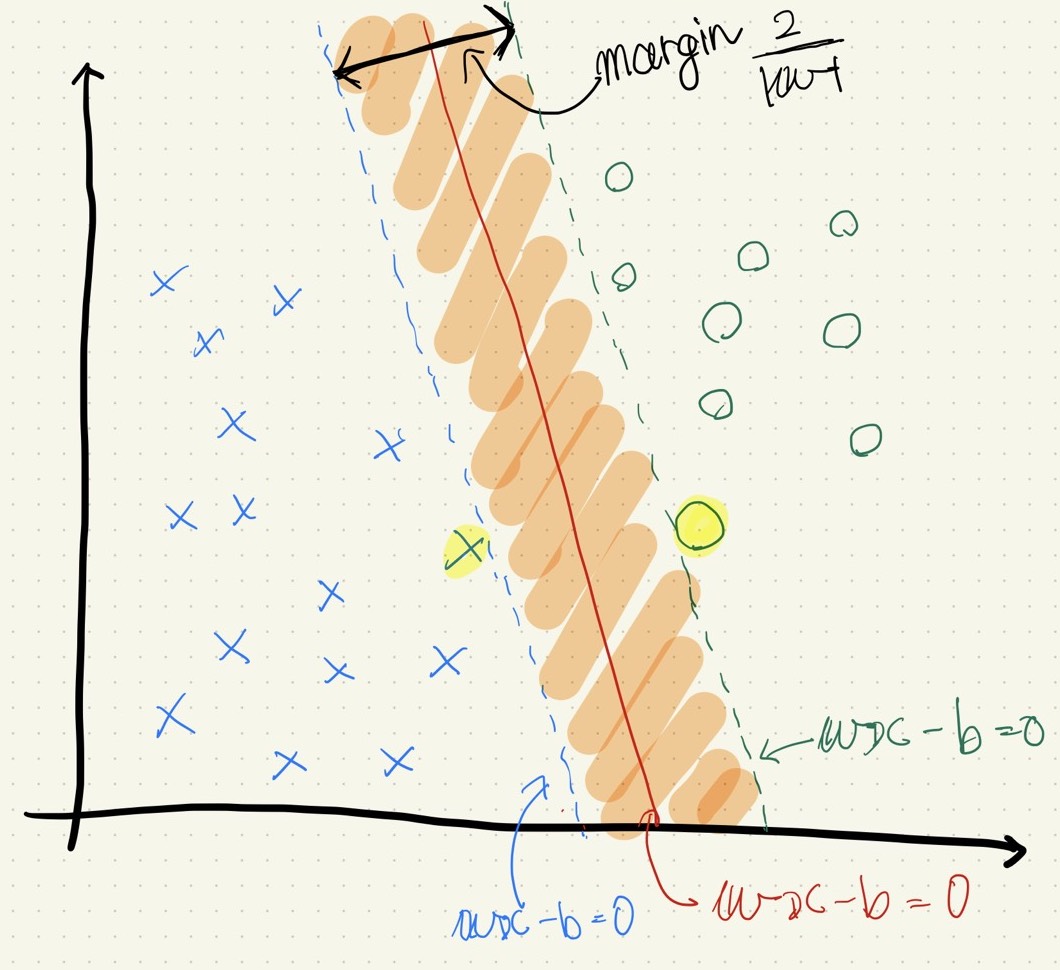 margin 2/||w||
wx - b = 0
wx - b = 0
wx - b = 0